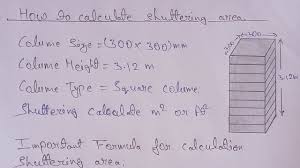 How to calculate shuttering area
Column Size = (300 x 300) mm
Column Height = 3.12 m
Column Type = Square column
Shuttering calculate m² or ft²
Important Formula for calculation
Shuttering area.
300
300